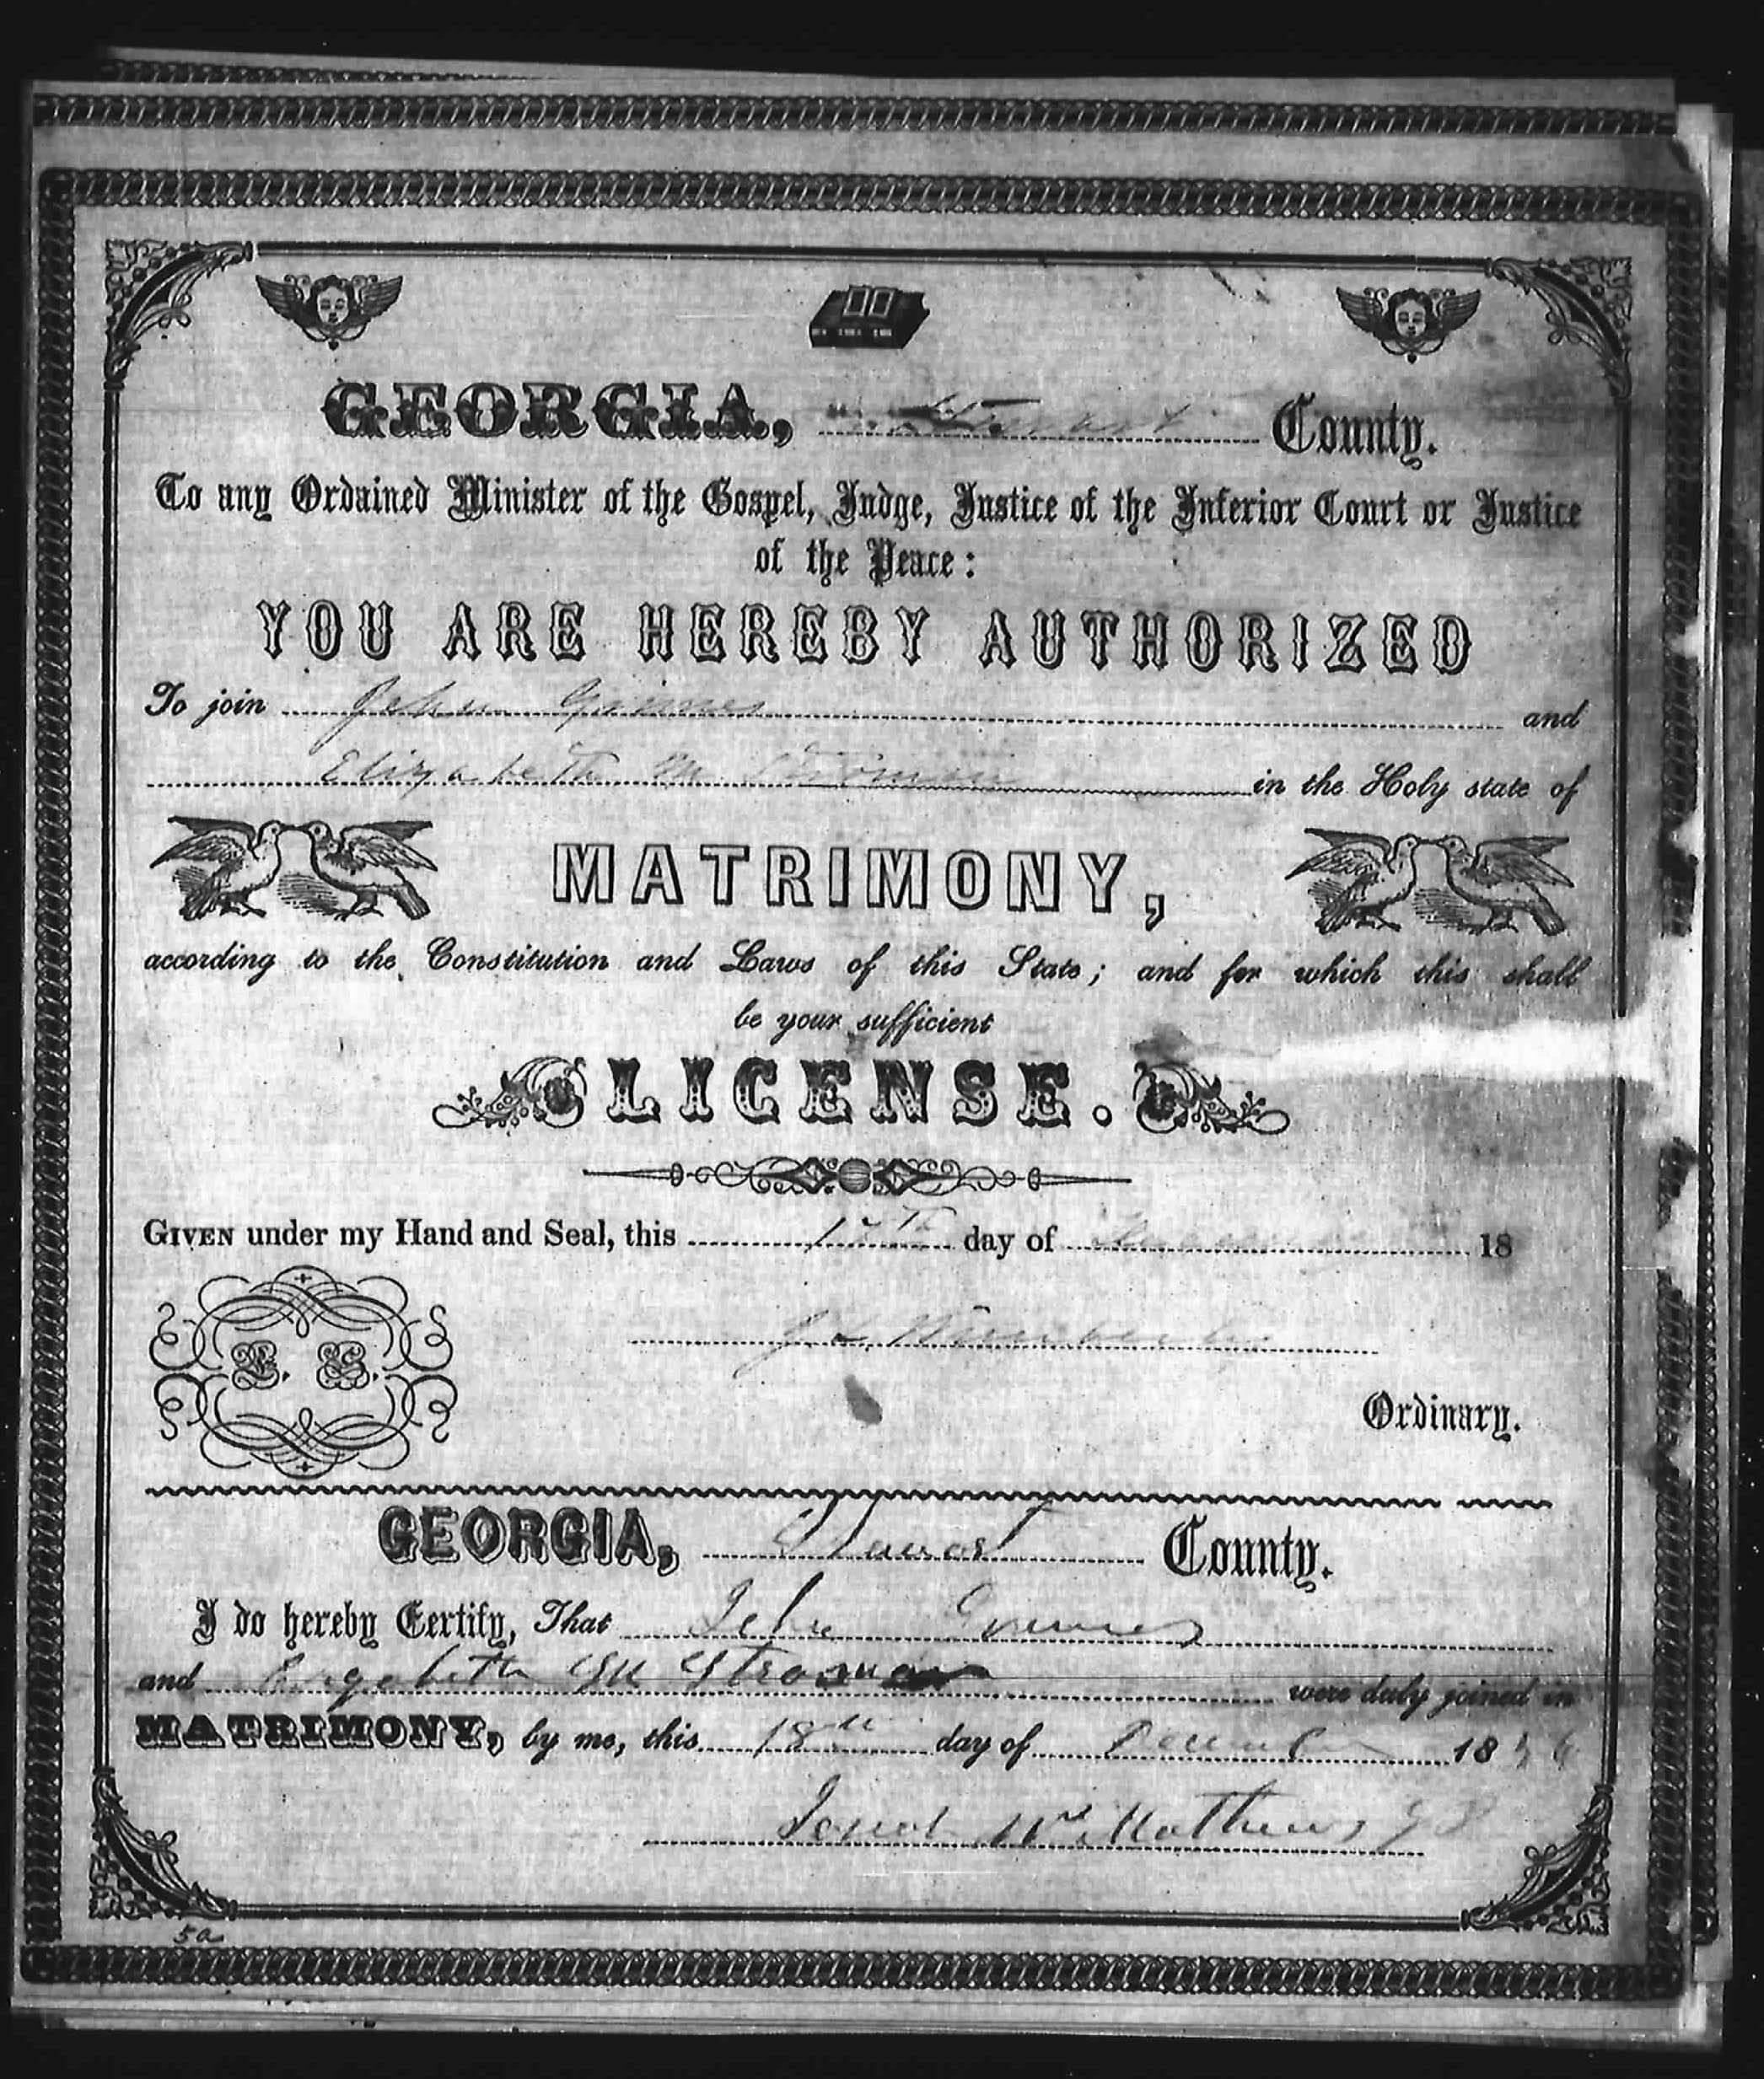 GEORGIA, Stewart County.
To any Ordained Minister of the Gospel, Judge, Justice of the Inferior Court or Justice
of the Peace:
YOU ARE HEREBY AUTHORIZED
To join John Grimes and
Elizabeth M. in the Holy state of
MATRIMONY,
according to the Constitution and Laws of this State; and for which this shall
be your sufficient
LICENSE.
GIVEN under my Hand and Seal, this day of 18
J. L.
L. S.
Ordinary.
GEORGIA, Stewart County.
I do hereby Certify, That John Grimes
and Elizabeth M Stroman were duly joined in
MATRIMONY, by me, this 18th day of December 18
Mathews J P
5a